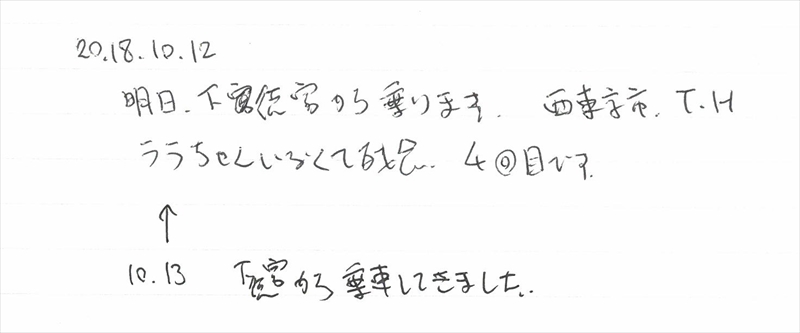 20.18.10.12
明日、下徳富から乗ります。 西東京市、T.H
ララちゃんいなくて残念。 4回目です。
↑
10.13 下徳富から乗車してきました。